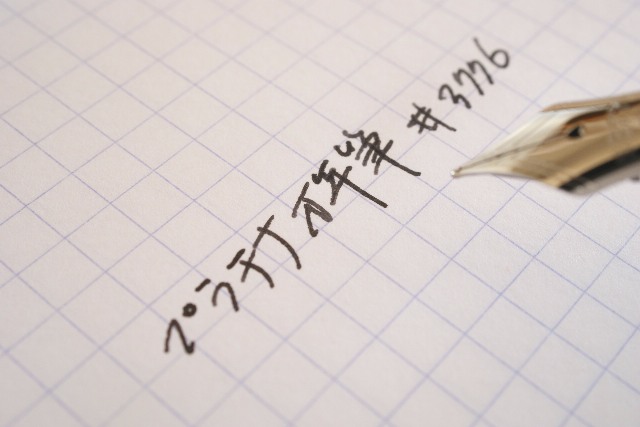 プラチナ万年筆 #3776